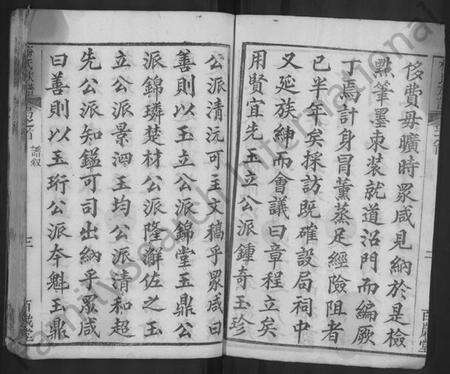 侈費毋曠時眾咸見納於是檢
點筆墨束裝就道沿門而編厥
丁焉計身冒薰蒸足經險阻者
已半年矣採訪既確設局祠中
又延族紳而會議曰章程立矣
用賢宜先玉立公派鍾奇玉珍
公派清沅可主文稿乎眾咸曰
善則以玉立公派錦堂玉鼎公
派錦璘楚材公派隆澥佐之玉
立公派景泗玉均公派清和超
先公派知鎰可司出納乎眾咸
曰善則以玉珩公派本魁玉鼎
卷首
譜敘
三
百歲堂
二
百歲堂
familysearch International